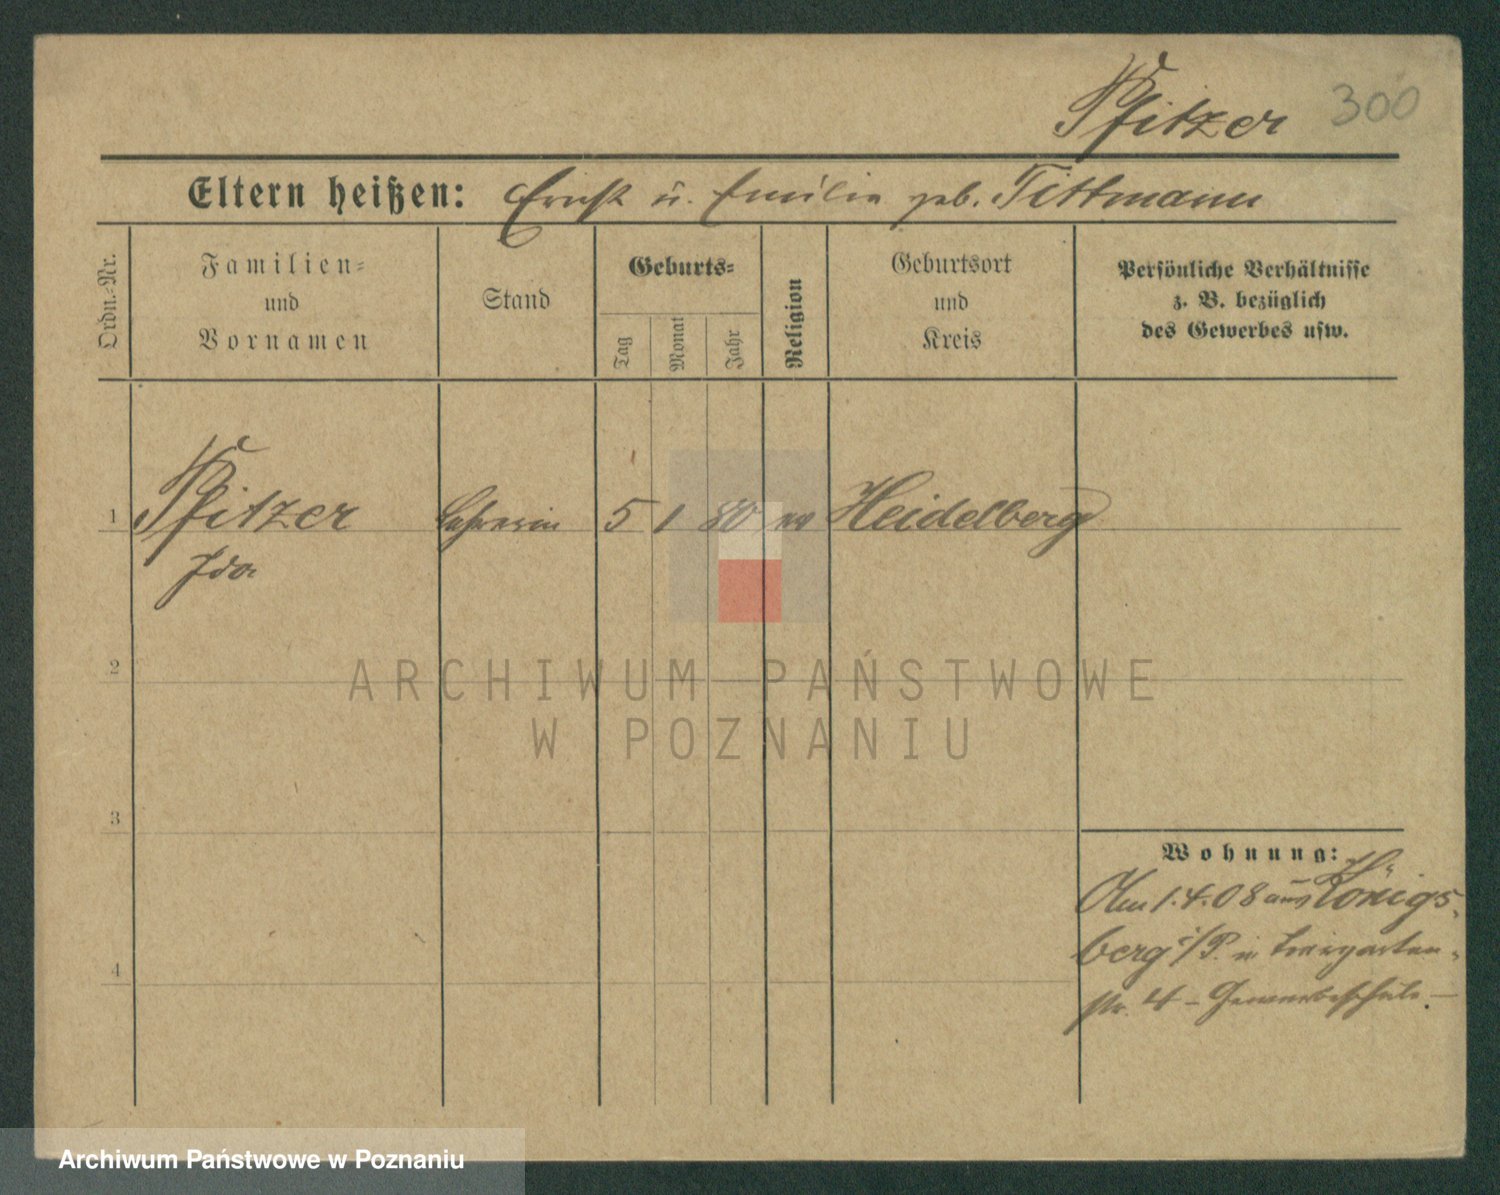 Pfitzer 300
Eltern heißen: Ernst u. Emilie geb. Tittmann
Ordn.-Nr.
Familien-
und
Vornamen
Stand
Geburts-
Tag
Monat
Jahr
Religion
Geburtsort
und
Kreis
Persönliche Verhältnisse
z. B. bezüglich
des Gewerbes usw.
1 Pfitzer Lehrerin 5 1 80 ev Heidelberg
Ida
2
3
4
Wohnung:
Am 1.4.08 aus Königs-
berg i/P. n.
str. 4 - Gewerbeschule -
ARCHIWUM PAŃSTWOWE
W POZNANIU
Archiwum Państwowe w Poznaniu